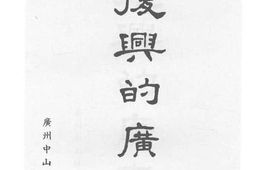 復興的廣
廣州中山